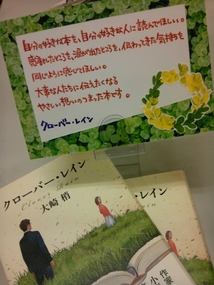 自分の好きな本を、自分の好きな人に読んでほしい。
感動したところを、涙が出たところを、伝わってきた気持ちを
同じように感じてほしい。
大事な人たちに伝えたくなる
やさしい想いのつまった本です。
クローバー・レイン
クローバー・レイン
Clover Rain
大崎 梢
クローバー・レイン
作家
小